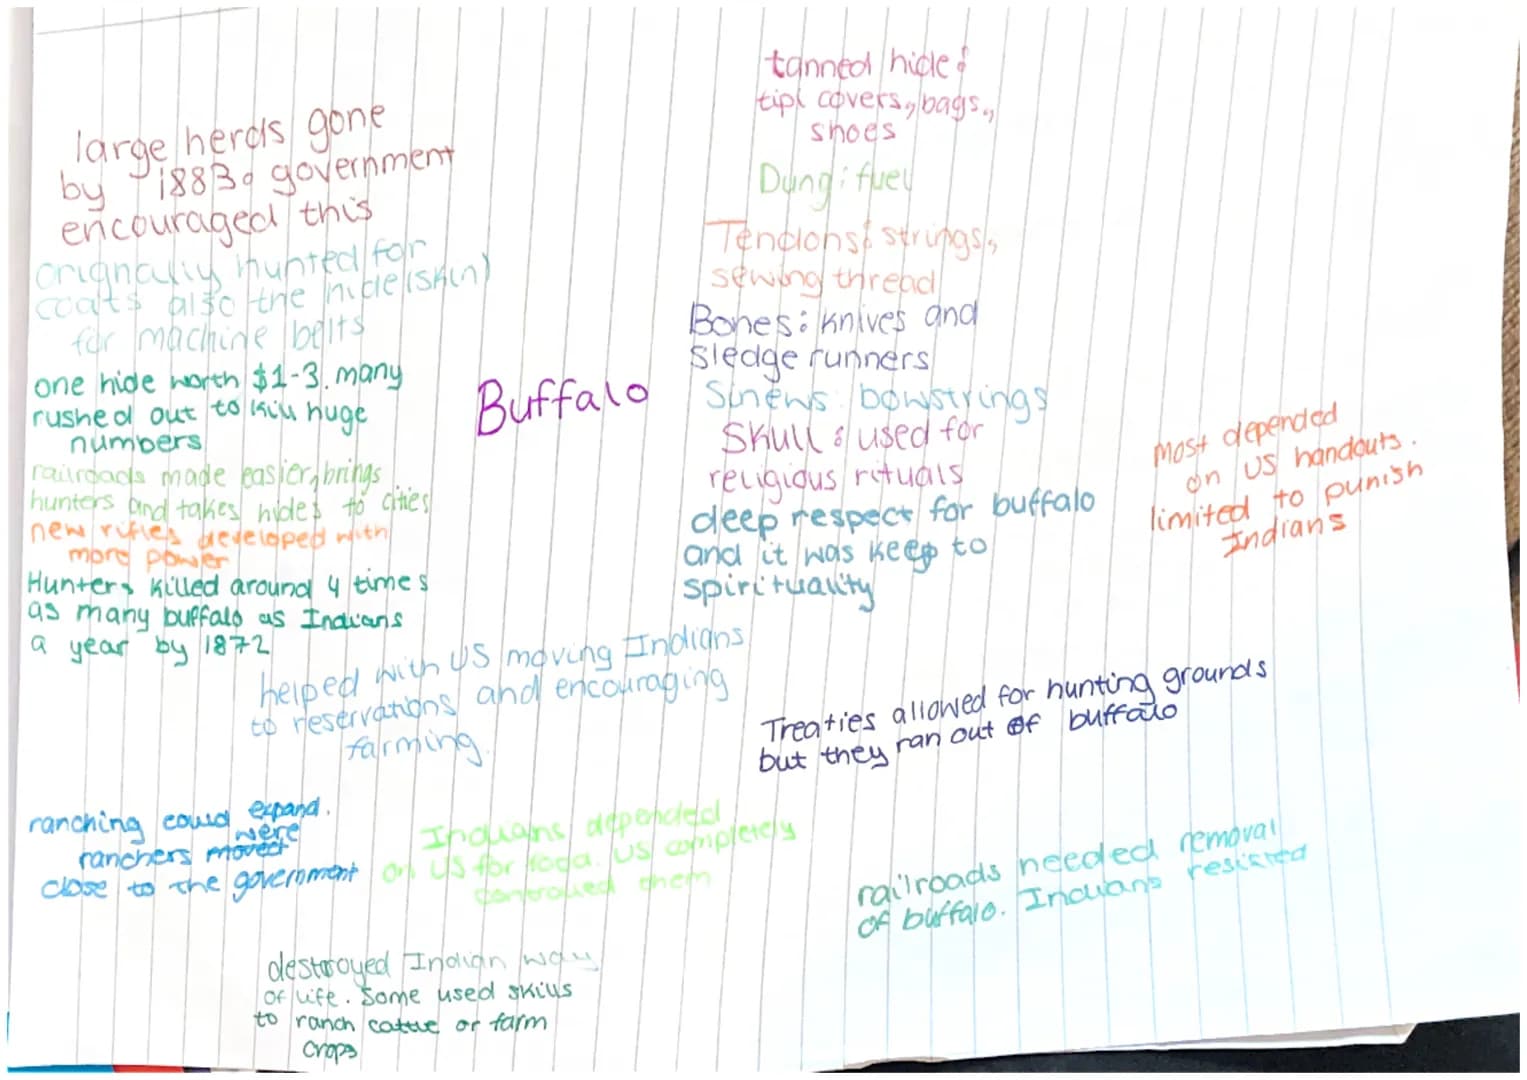 large herds gone
by 1883. government
encouraged this
originally hunted for
coats also the hide (skin)
for machine belts
one hide worth $1-3. many
rushed out to kill huge
numbers
railroads made easier, brings
hunters and takes hides to cities
new rifles developed with
more power
Hunters killed around 4 times
as many buffalo as Indians
a year by 1872
Buffalo
tanned hide:
tipi covers, bags,
shoes
Dung: fuel
Tendons: strings,
sewing thread
Bones: knives and
sledge runners
Sinews: bowstrings
Skull: used for
religious rituals
deep respect for buffalo
and it was keep to
spirituality
Most depended
on US handouts.
limited to punish
Indians
helped with US moving Indians
to reservations and encouraging
farming.
Treaties allowed for hunting grounds
but they ran out of buffalo
ranching could expand.
were
ranchers moved
close to the government
Indians depended
on US for food. US completely
controlled them
railroads needed removal
of buffalo. Indians resisted
destroyed Indian way
of life. Some used skills
to ranch cattle or farm
crops